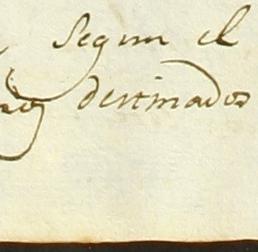 Segun el
destinados